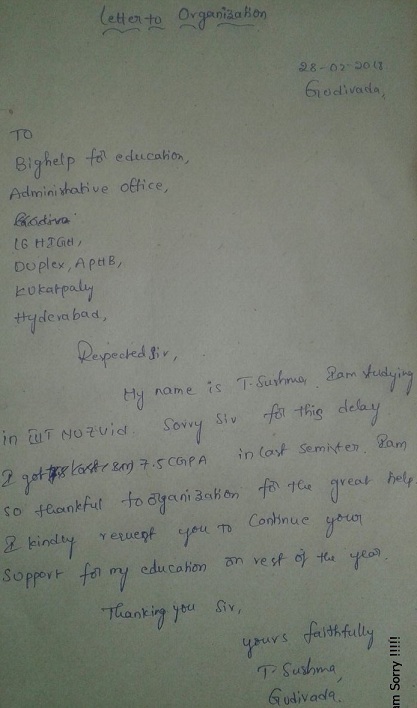 Letter to Organization
28-02-2018
Gudivada,
TO
Bighelp for education,
Administrative office,
LG HIGH,
Duplex, APHB,
Kukatpaly
Hyderabad,
Respected Sir,
My name is T. Sushma. Iam studying
in IIIT NUZVid. Sorry Sir for this delay.
I got 7.5 CGPA in last semister. Iam
so thankful to organization for the great help.
I kindly request you to Continue your
Support for my education on rest of the year.
Thanking you Sir,
yours faithfully
T. Sushma,
Gudivada.
am Sorry !!!!!